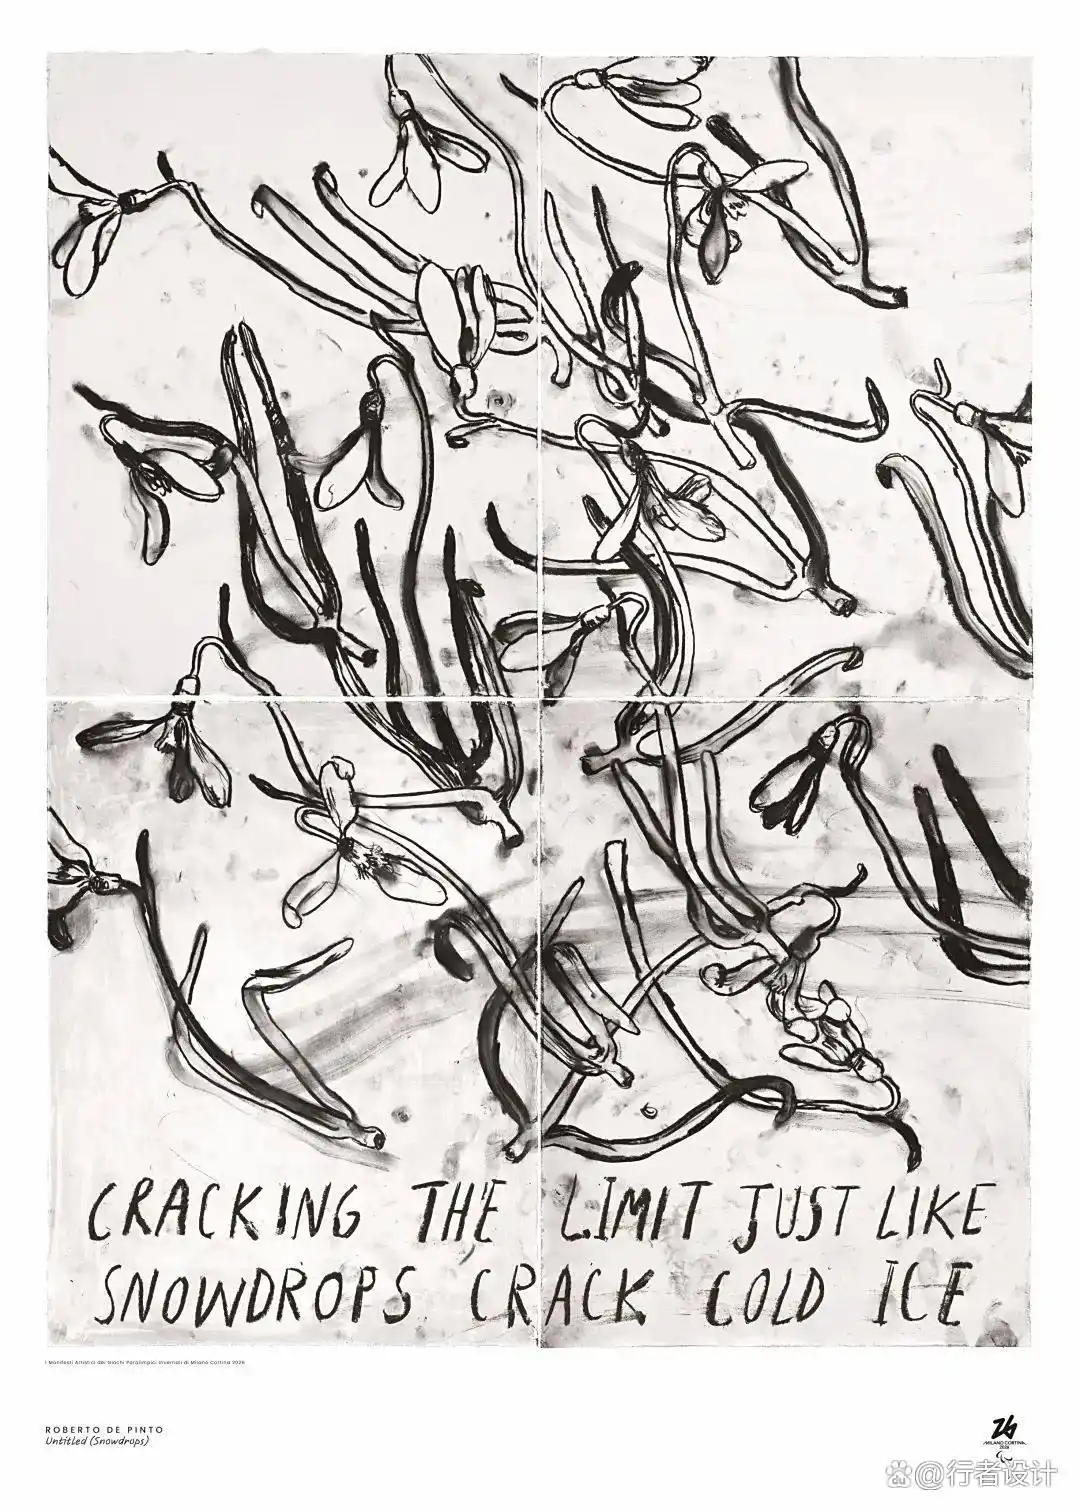 CRACKING THE LIMIT JUST LIKE
SNOWDROPS CRACK COLD ICE
I Manifesti Artistici dei Giochi Paralimpici Invernali di Milano Cortina 2026
ROBERTO DE PINTO
Untitled (Snowdrops)
26
MILANO CORTINA
2026
du @行者设计